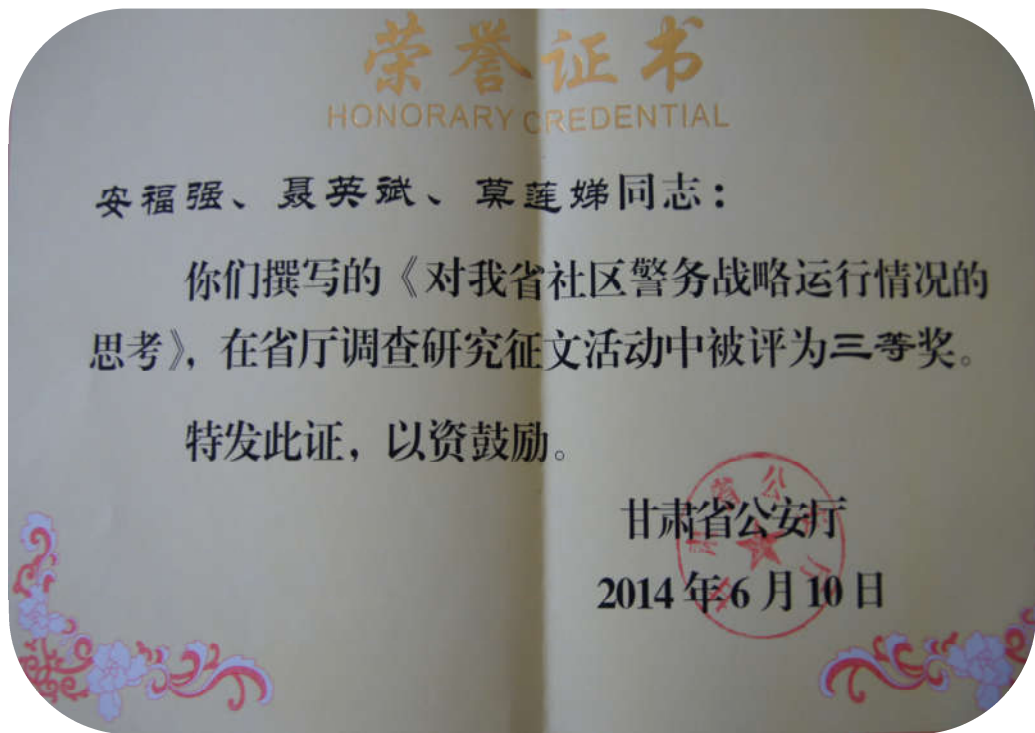 荣誉证书
HONORARY CREDENTIAL
安福强、聂英斌、莫莲娣同志：
你们撰写的《对我省社区警务战略运行情况的
思考》，在省厅调查研究征文活动中被评为三等奖。
特发此证，以资鼓励。
甘肃省公安厅
2014年6月10日